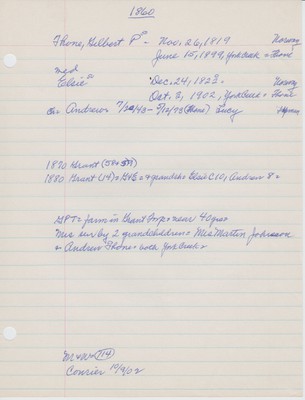 1860
Thone, Gilbert P - Nov. 26, 1819 Norway
June 15, 1899, York Creek = Thone
med
Elsie Dec. 24, 1823 Norway
Oct. 3, 1902, York Creek = Thone
Ch = Andrew 7/ /48 - 5/12/93 (Thone) Lucy
1870 Grant (58 )
1880 Grant (14) = G & E = + grandch = Elsie C 10, Andrew 8 =
GPT = farm in Grant Twp = near 40 yrs =
Mrs sur by 2 grandchildren = Mrs Martin Johnson
& Andrew Thone = both York Creek =
M & W = 114
Courier 10/9/02